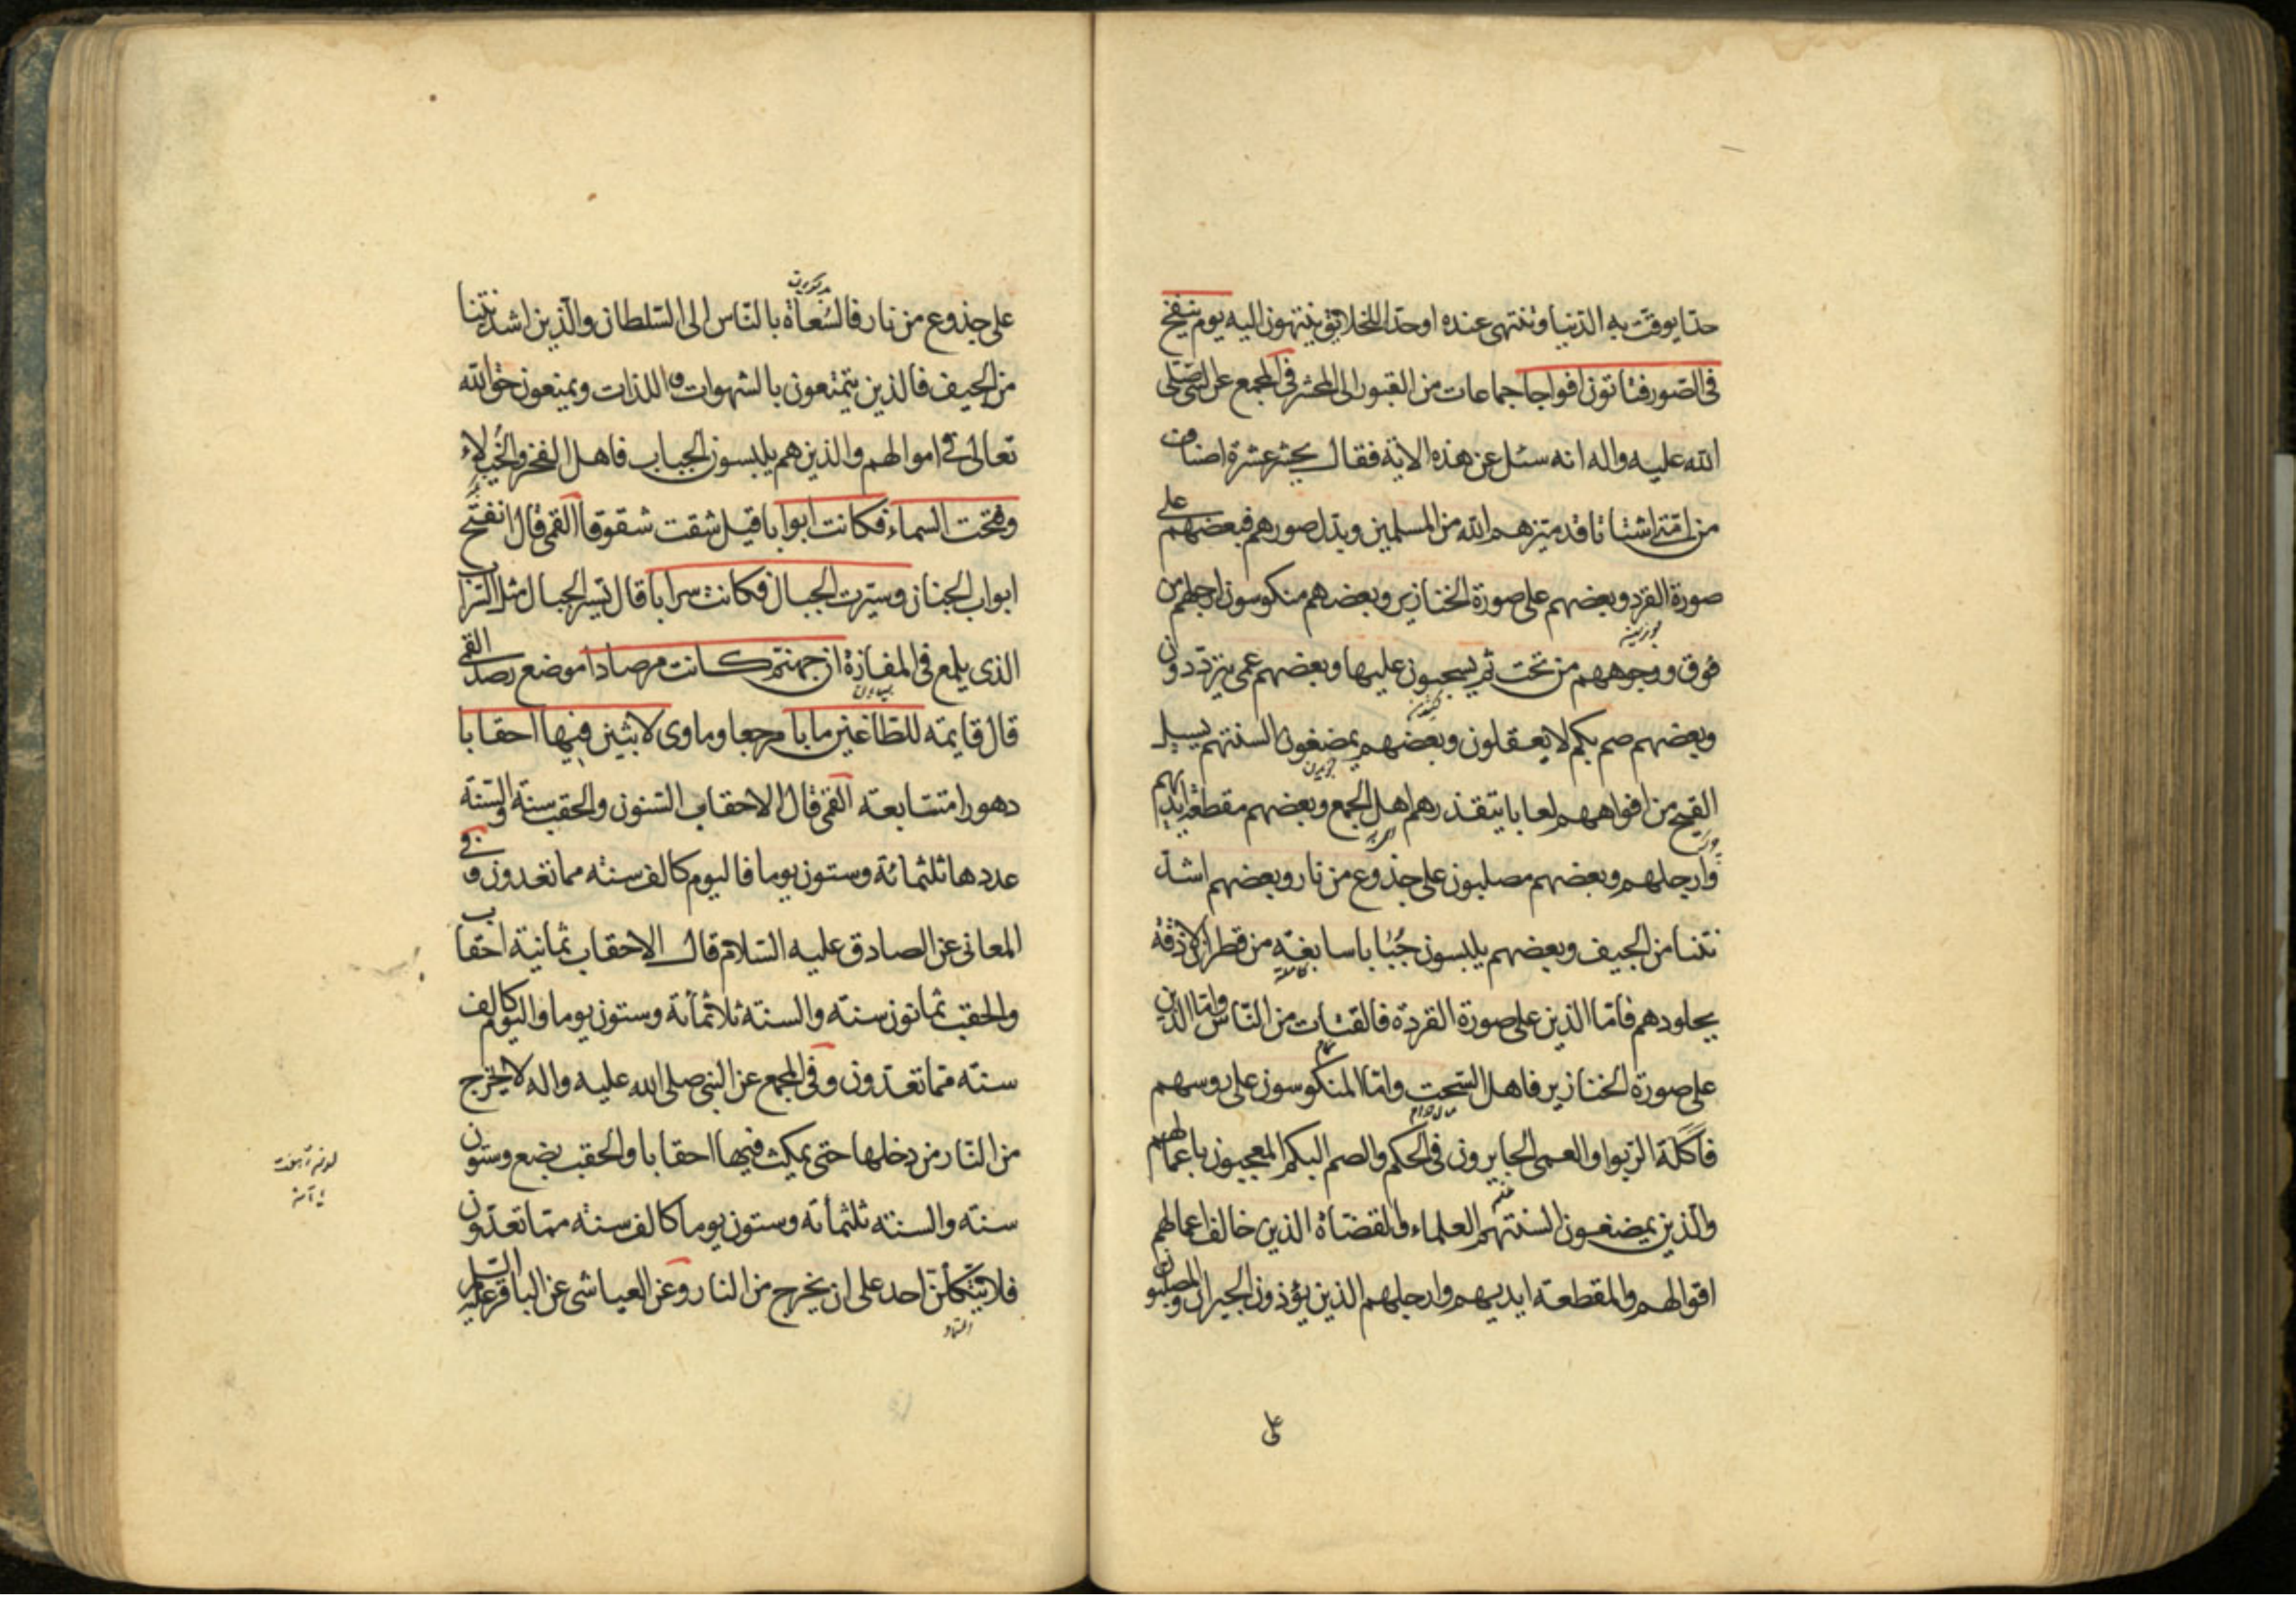 حدا يوقت به الدنيا وتنتهى عنده او حدا للخلايق ينتهون اليه يوم ينفخ
فى الصور فتاتون افواجا جماعات من القبور الى المحشر فى المجمع عن النبى صلى
الله عليه واله انه سئل عن هذه الاية فقال يحشر عشرة اصناف
من امتى اشتاتا قد ميزهم الله من المسلمين وبدل صورهم فبعضهم على
صورة القرد وبعضهم على صورة الخنازير وبعضهم منكوسون ارجلهم من
فوق ووجوههم من تحت ثم يسحبون عليها وبعضهم عمى يترددون
وبعضهم صم بكم لا يعقلون وبعضهم يمضغون السنتهم يسيل
القيح من افواههم لعابا يتقذرهم اهل الجمع وبعضهم مقطعة ايديهم
وارجلهم وبعضهم مصلبون على جذوع من نار وبعضهم اشد
نتنا من الجيف وبعضهم يلبسون جبابا سابغة من قطران لازقة
بجلودهم فاما الذين على صورة القردة فالقتات من الناس واما الذين
على صورة الخنازير فاهل السحت واما المنكوسون على روسهم
مال حرام
فاكلة الربوا والعمى الجايرون فى الحكم والصم البكم المعجبون باعمالهم
والذين يمضغون السنتهم العلماء والقضاة الذين خالف اعمالهم
اقوالهم والمقطعة ايديهم وارجلهم الذين يؤذون الجيران والمصلبون
على
على جذوع من نار فالسعاة بالناس الى السلطان والذين اشد نتنا
من الجيف فالذين يتمتعون بالشهوات واللذات ويمنعون حق الله
تعالى فى اموالهم والذين هم يلبسون الجباب فاهل الفخر والخيلاء
وفتحت السماء فكانت ابوابا قيل شقت شقوقا القمى قال انفتح
ابواب الجنان وسيرت الجبال فكانت سرابا قال تسير الجبال مثل السراب
الذى يلمع فى المفازة ان جهنم كانت مرصادا موضع رصد القمى
قال قايمة للطاغين مابا مرجعا وماوى لابثين فيها احقابا
دهورا متتابعة القمى قال الاحقاب السنون والحقب سنة والسنة
عددها ثلثمائة وستون يوما فاليوم كالف سنة مما تعدون وفى
المعانى عن الصادق عليه السلام قال الاحقاب ثمانية احقاب
والحقب ثمانون سنة والسنة ثلاثمأئة وستون يوما واليوم كالف
سنة مما تعدون وفى المجمع عن النبى صلى الله عليه واله لا يخرج
من النار من دخلها حتى يمكث فيها احقابا والحقب بضع وستون
سنة والسنة ثلثمأئة وستون يوما كالف سنة مما تعدون
فلا يتكلن احد على ان يخرج من النار وعن العياشى عن الباقر عليه السلم